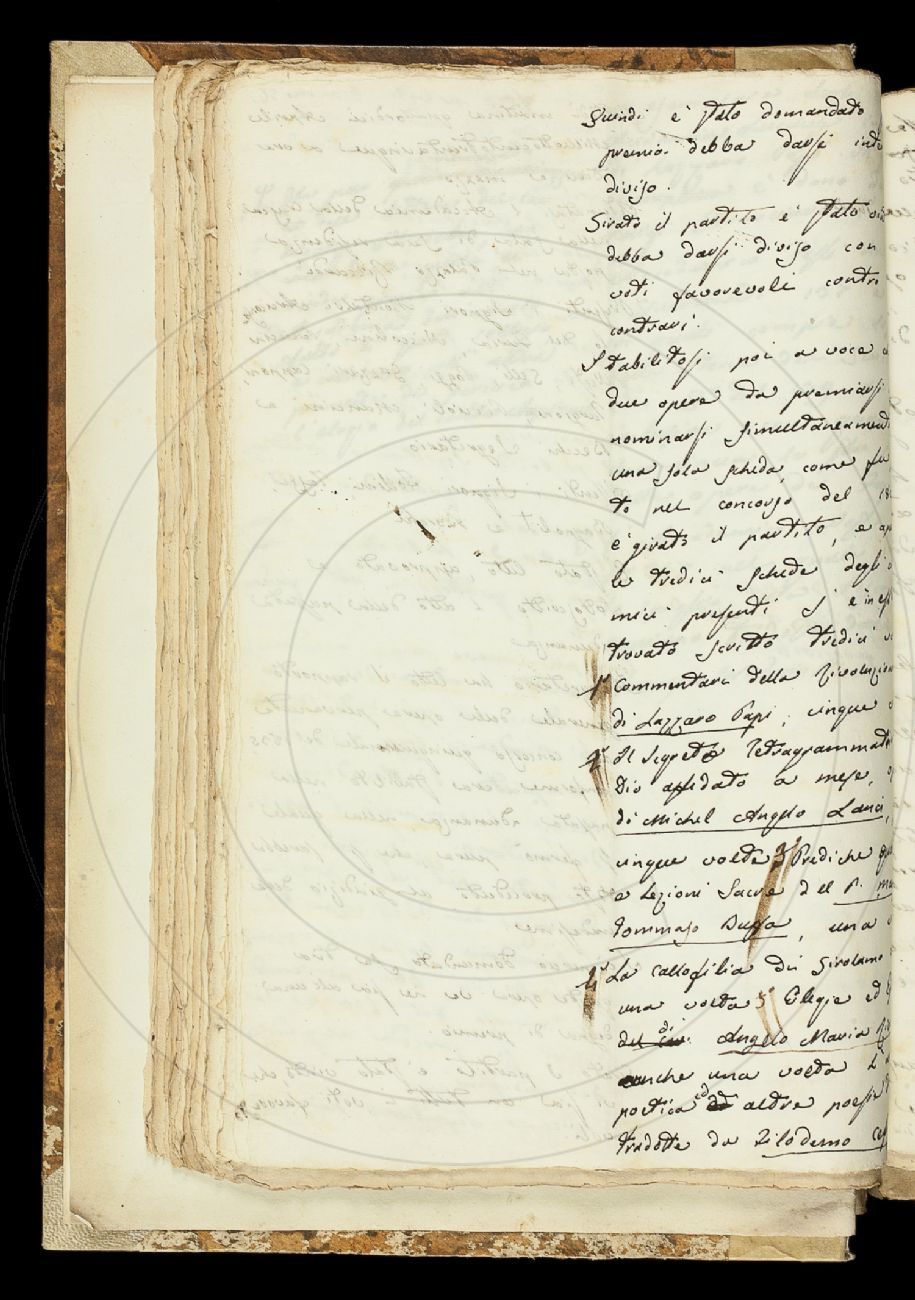 Quindi è stato domandato
premio debba darsi
diviso.
Girato il partito è stato
debba darsi diviso con
voti favorevoli
contrari.
Stabilitosi poi a voce
due opere da premiarsi
nominarsi simultaneament
una sola scheda, come fu
to nel concorso del 18
è girato il partito, e
le tredici schede degli
mici presenti s' è in
trovato scritto tredici
1° Commentari della Rivoluzion
di Lazzaro Papi; cinque
2° Il Segreto Tetragrammat
Dio affidato a Mosè,
di Michel Angelo Lanci,
cinque volte 3° Prediche
e Lezioni Sacre del P.
Tommaso Buffa, una
4° La Callofilia di Girolamo
una volta 5° Elegie ed
del di Angelo Maria
anche una volta L'
poetica ed altre poesie
tradotte da Filodemo